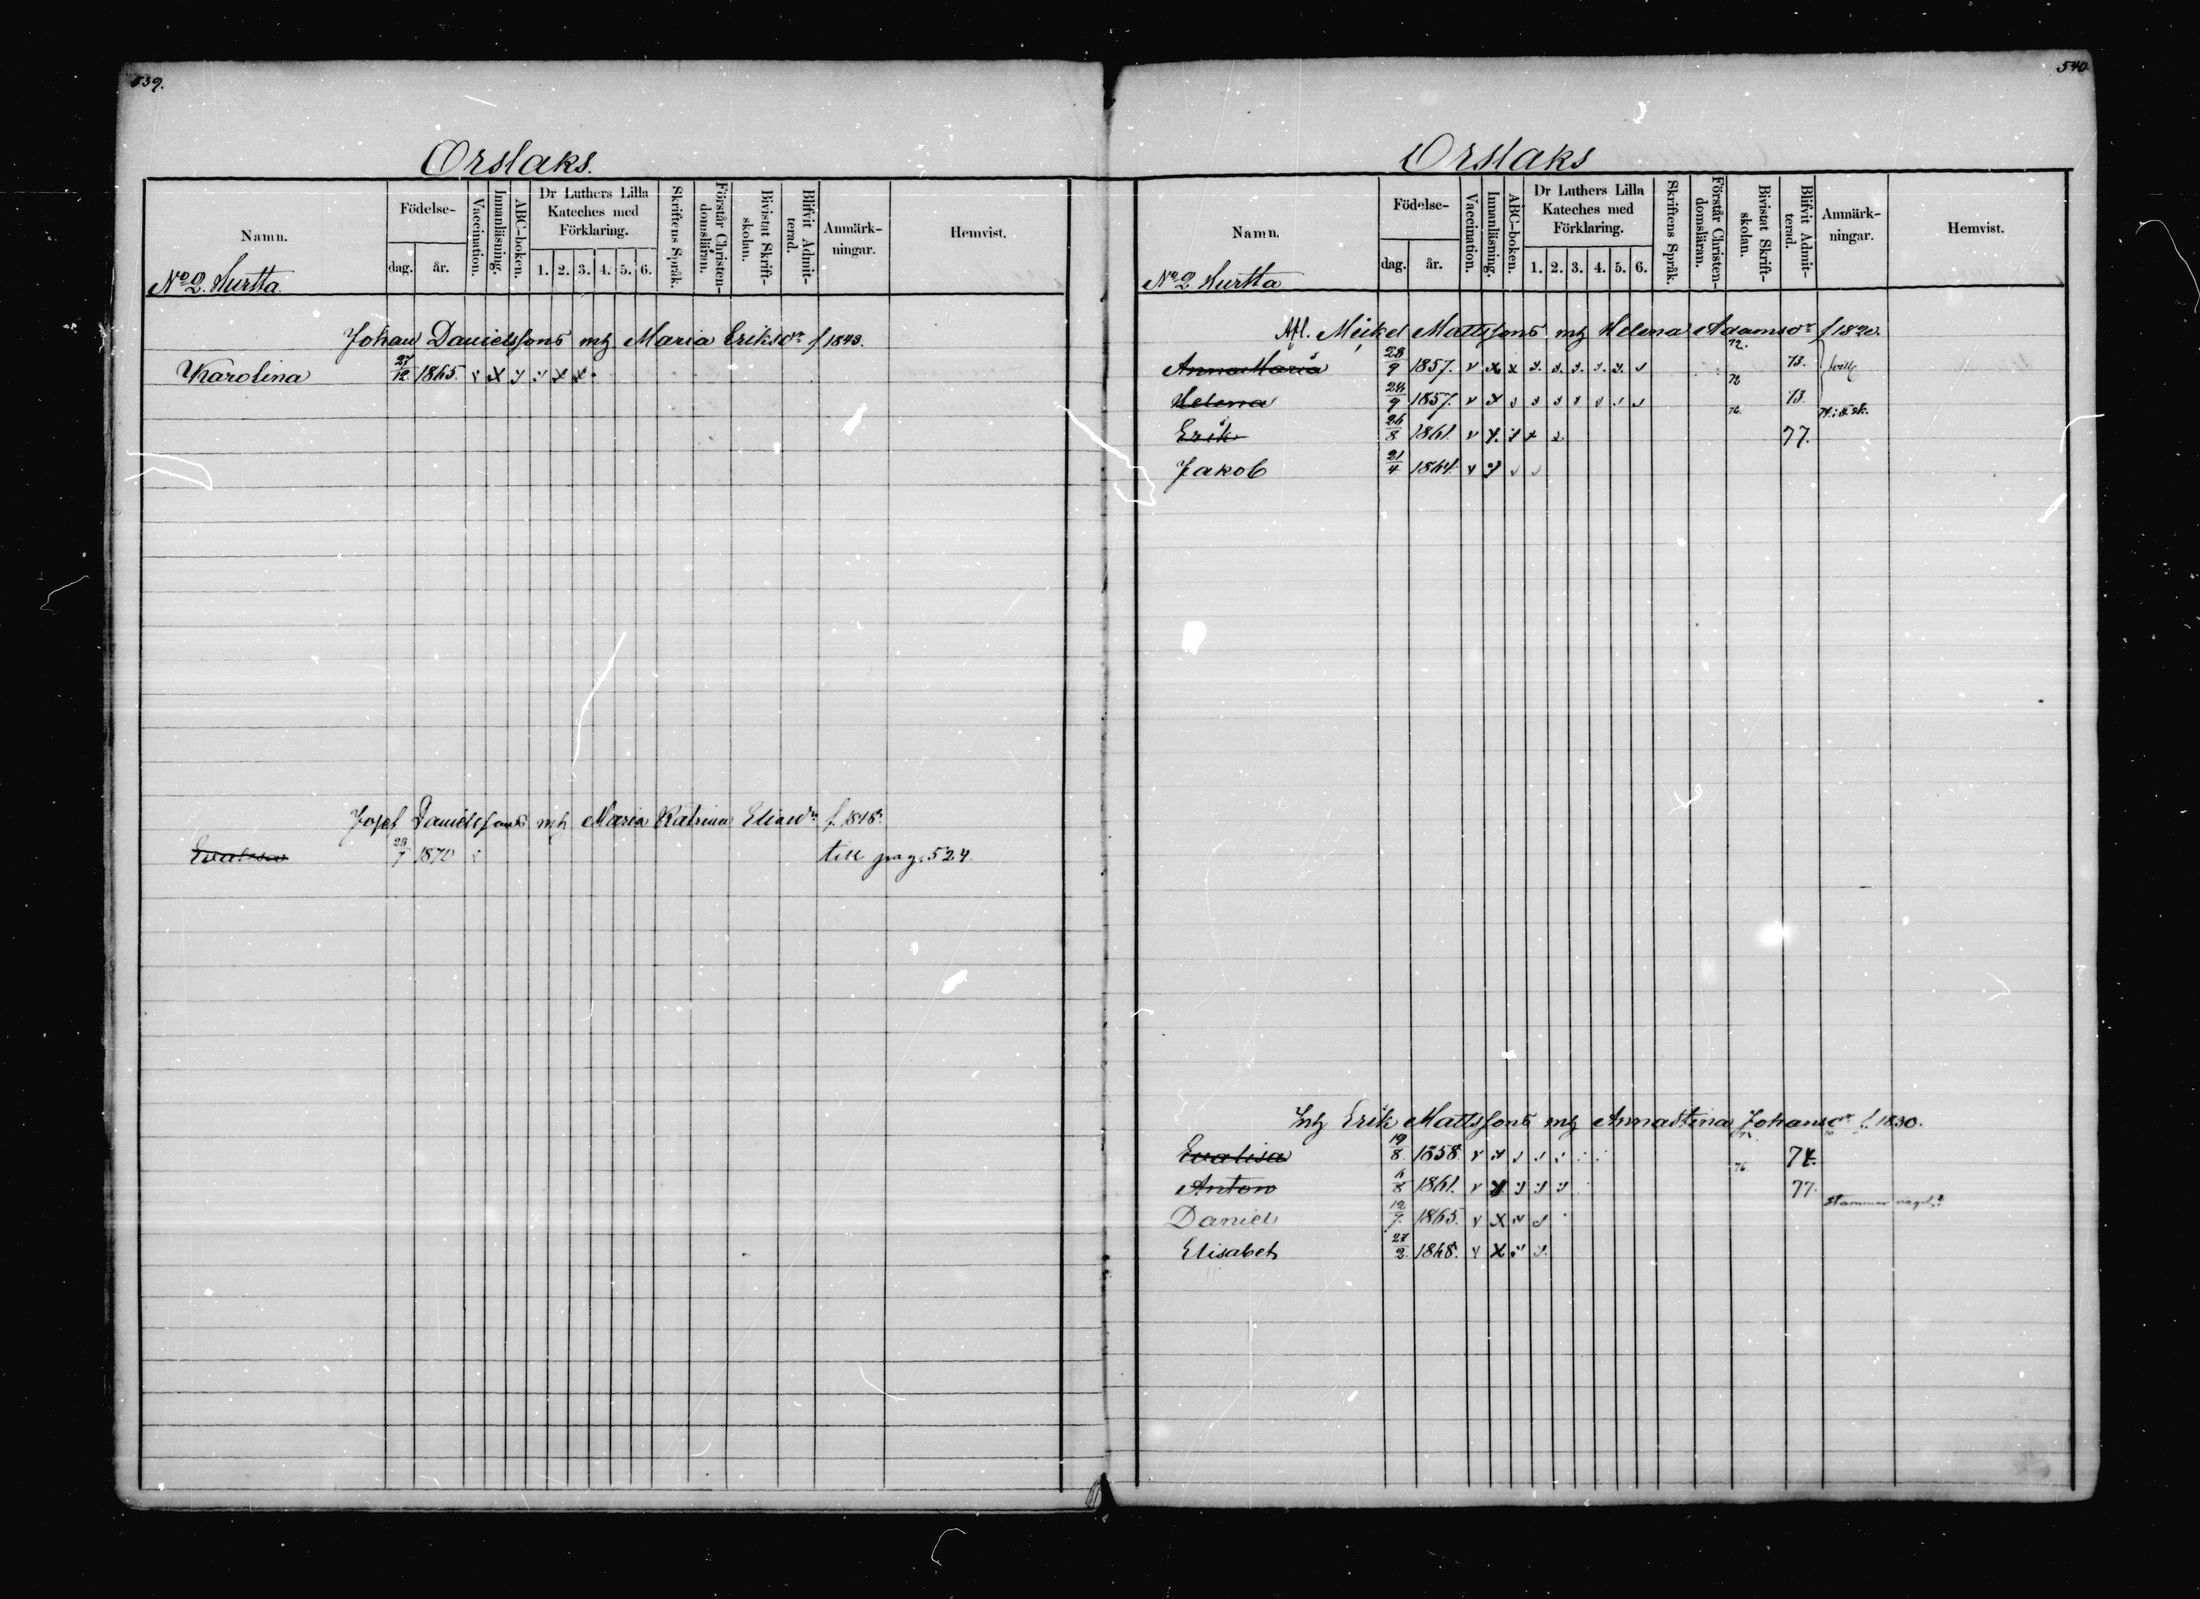 539.
Orslaks.
Namn.
Födelse-
dag.
år.
Vaccination.
Innanläsning.
ABC-boken.
Dr Luthers Lilla
Kateches med
Förklaring.
1. 2. 3. 4. 5. 6.
Skriftens Språk.
Förstår Christen-
domsläran.
Bivistat Skrift-
skolan.
Blifvit Admit-
terad.
Anmärk-
ningar.
Hemvist.
No 2. Kurtta.
Johan Danielssons mh Maria Eriksdr f 1843.
Karolina 27/12 1865.
Josef Danielssons mh Maria Katrina Eliasdr f. 1848.
Evalisa 29/7 1870 till pag. 524.
540.
Orslaks
Namn.
Födelse-
dag.
år.
Vaccination.
Innanläsning.
ABC-boken.
Dr Luthers Lilla
Kateches med
Förklaring.
1. 2. 3. 4. 5. 6.
Skriftens Språk.
Förstår Christen-
domsläran.
Bivistat Skrift-
skolan.
Blifvit Admit-
terad.
Anmärk-
ningar.
Hemvist.
No 2 Kurtta
Afl. Mickel Mattssons mh Helena Adamsdr f 1820.
Anna Maria 28/9 1857. 72. 73.
Helena 24/9 1857. 72 73.
Erik 26/8 1861. 76. 77.
Jakob 21/4 1864
Inh Erik Mattssons mh Annastina Johansdr f. 1830.
Evalisa 19/8 1858. 74.
Anton 6/8 1861. 76 77.
Daniel 12/9. 1865. stammar
Elisabet 27/2. 1868.